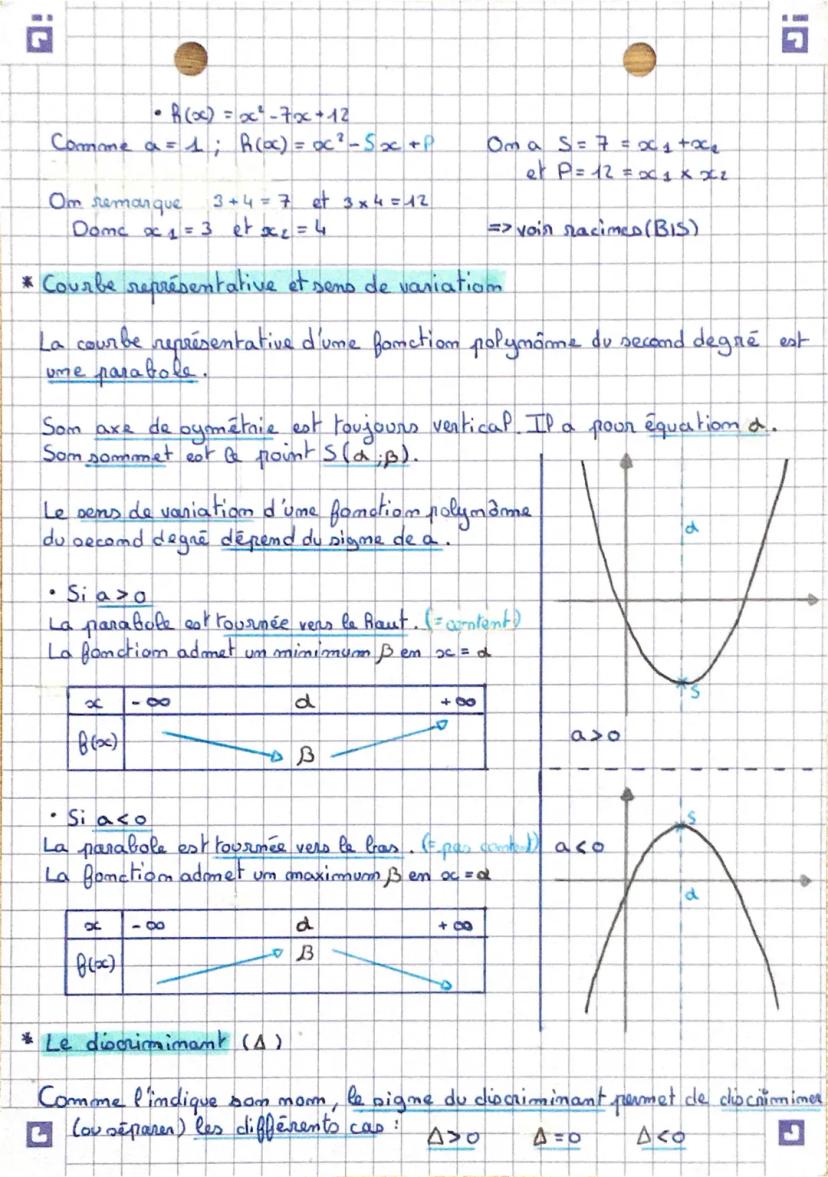 • h(x) = x² - 7x + 12
Comme a = 1 ; h(x) = x² - Sx + P
On a S = 7 = x₁ + x₂
et P = 12 = x₁ × x₂
On remarque 3 + 4 = 7 et 3 × 4 = 12
Donc x₁ = 3 et x₂ = 4
=> voir racines (BIS)
* Courbe représentative et sens de variation
La courbe représentative d'une fonction polynôme du second degré est
une parabole.
Son axe de symétrie est toujours vertical. Il a pour équation α.
Son sommet est le point S(α ; β).
Le sens de variation d'une fonction polynôme
du second degré dépend du signe de a.
• Si a > 0
La parabole est tournée vers le haut. (= content)
La fonction admet un minimum β en x = α
x -∞ α +∞
f(x) β
α
S
a > 0
• Si a < 0
La parabole est tournée vers le bas. (= pas content)
La fonction admet un maximum β en x = α
x -∞ α +∞
f(x) β
a < 0
S
α
* Le discriminant (Δ)
Comme l'indique son nom, le signe du discriminant permet de discriminer
(ou séparer) les différents cas : Δ > 0 Δ = 0 Δ < 0